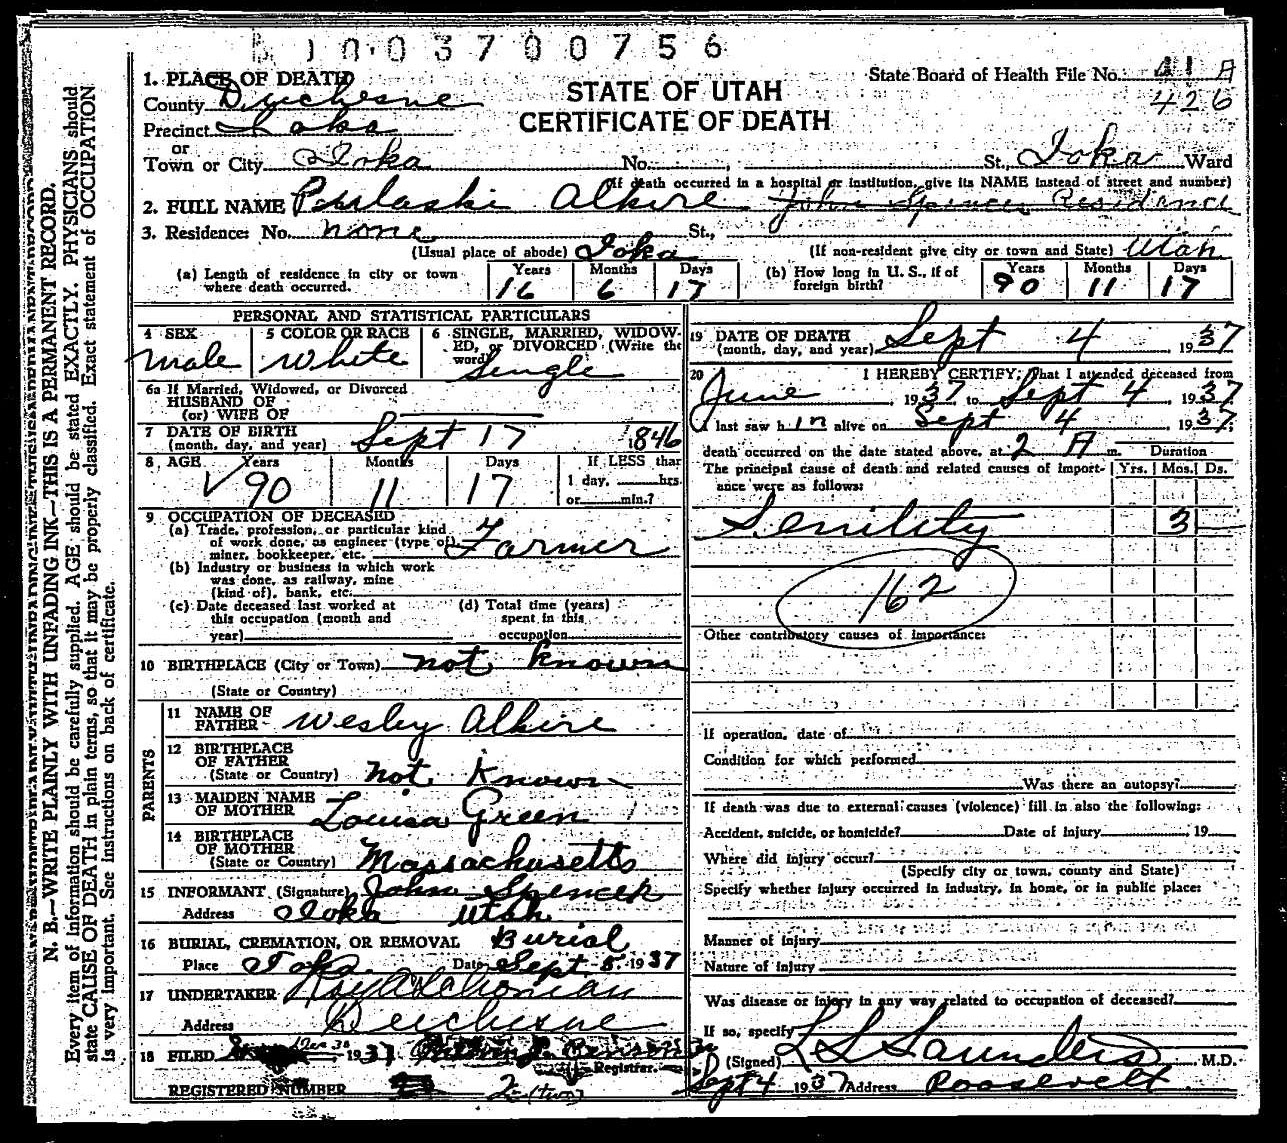 N. B.—WRITE PLAINLY WITH UNFADING INK—THIS IS A PERMANENT RECORD.
Every item of information should be carefully supplied. AGE should be stated EXACTLY. PHYSICIANS should
state CAUSE OF DEATH in plain terms, so that it may be properly classified. Exact statement of OCCUPATION
is very important. See instructions on back of certificate.
003700756
1. PLACE OF DEATH
County Duchesne
Precinct Ioka
or
Town or City Ioka No. , St., Ioka Ward
STATE OF UTAH
CERTIFICATE OF DEATH
State Board of Health File No. 41 A
426
(If death occurred in a hospital or institution, give its NAME instead of street and number)
2. FULL NAME Pulaski Alkire John Spencer Residence
3. Residence: No. none St.,
(Usual place of abode) Ioka (If non-resident give city or town and State) Utah
(a) Length of residence in city or town where death occurred. Years 16 Months 6 Days 17
(b) How long in U. S., if of foreign birth? Years 90 Months 11 Days 17
PERSONAL AND STATISTICAL PARTICULARS
4 SEX male
5 COLOR OR RACE White
6 SINGLE, MARRIED, WIDOWED, or DIVORCED (Write the word) Single
6a If Married, Widowed, or Divorced
HUSBAND OF
(or) WIFE OF
7 DATE OF BIRTH
(month, day, and year) Sept 17 1846
8 AGE Years 90 Months 11 Days 17 If LESS than
1 day, hrs.
or min.?
9 OCCUPATION OF DECEASED
(a) Trade, profession, or particular kind
of work done, as engineer (type of),
miner, bookkeeper, etc. Farmer
(b) Industry or business in which work
was done, as railway, mine
(kind of), bank, etc.
(c) Date deceased last worked at
this occupation (month and
year)
(d) Total time (years)
spent in this
occupation
10 BIRTHPLACE (City or Town) not known
(State or Country)
PARENTS
11 NAME OF
FATHER Wesley Alkire
12 BIRTHPLACE
OF FATHER
(State or Country) not Known
13 MAIDEN NAME
OF MOTHER Louisa Green
14 BIRTHPLACE
OF MOTHER
(State or Country) Massachusetts
15 INFORMANT (Signature) John Spencer
Address Ioka Utah
16 BURIAL, CREMATION, OR REMOVAL Burial
Place Ioka Date Sept 5, 1937
17 UNDERTAKER
Address Duchesne
18 FILED 1937 Benson
Registrar.
REGISTERED NUMBER 2-(two)
19 DATE OF DEATH
(month, day, and year) Sept 4, 1937
20 I HEREBY CERTIFY, That I attended deceased from
June, 1937 to Sept 4, 1937
I last saw him alive on Sept 4 1937;
death occurred on the date stated above, at 2 A m. Duration
The principal cause of death and related causes of importance were as follows: Yrs. Mos. Ds.
Senility 3
162
Other contributory causes of importance:
If operation, date of
Condition for which performed
Was there an autopsy?
If death was due to external causes (violence) fill in also the following:
Accident, suicide, or homicide? Date of injury , 19
Where did injury occur?
(Specify city or town, county and State)
Specify whether injury occurred in industry, in home, or in public place:
Manner of injury
Nature of injury
Was disease or injury in any way related to occupation of deceased?
If so, specify
(Signed) L S Saunders M.D.
Sept 4 1937 Address Roosevelt